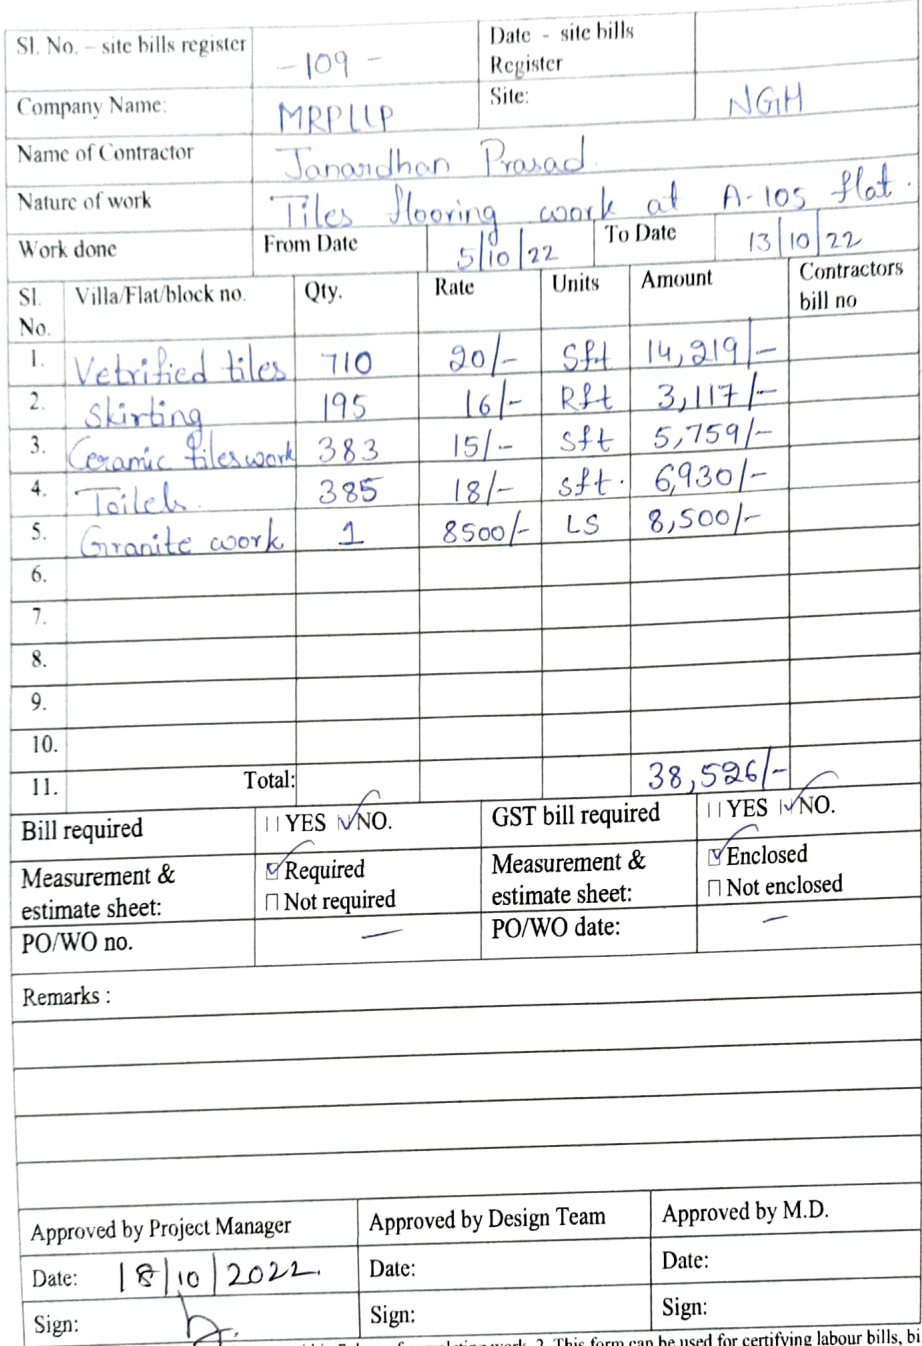 Sl. No. – site bills register -109- Date - site bills Register
Company Name: MRPLLP Site: NGH
Name of Contractor Janardhan Prasad.
Nature of work Tiles flooring work at A-105 flat.
Work done From Date 5/10/22 To Date 13/10/22
Sl. No. Villa/Flat/block no. Qty. Rate Units Amount Contractors bill no
1. Vetrified tiles 710 20/- Sft 14,219/-
2. Skirting 195 16/- Rft 3,117/-
3. Ceramic tiles work 383 15/- Sft 5,759/-
4. Toilets. 385 18/- Sft. 6,930/-
5. Granite work 1 8500/- LS 8,500/-
6.
7.
8.
9.
10.
11. Total: 38,526/-
Bill required YES NO. GST bill required YES NO.
Measurement & estimate sheet: Required Not required Measurement & estimate sheet: Enclosed Not enclosed
PO/WO no. — PO/WO date: —
Remarks :
Approved by Project Manager Approved by Design Team Approved by M.D.
Date: 18/10/2022. Date: Date:
Sign: Sign: Sign:
2. This form can be used for certifying labour bills, bi